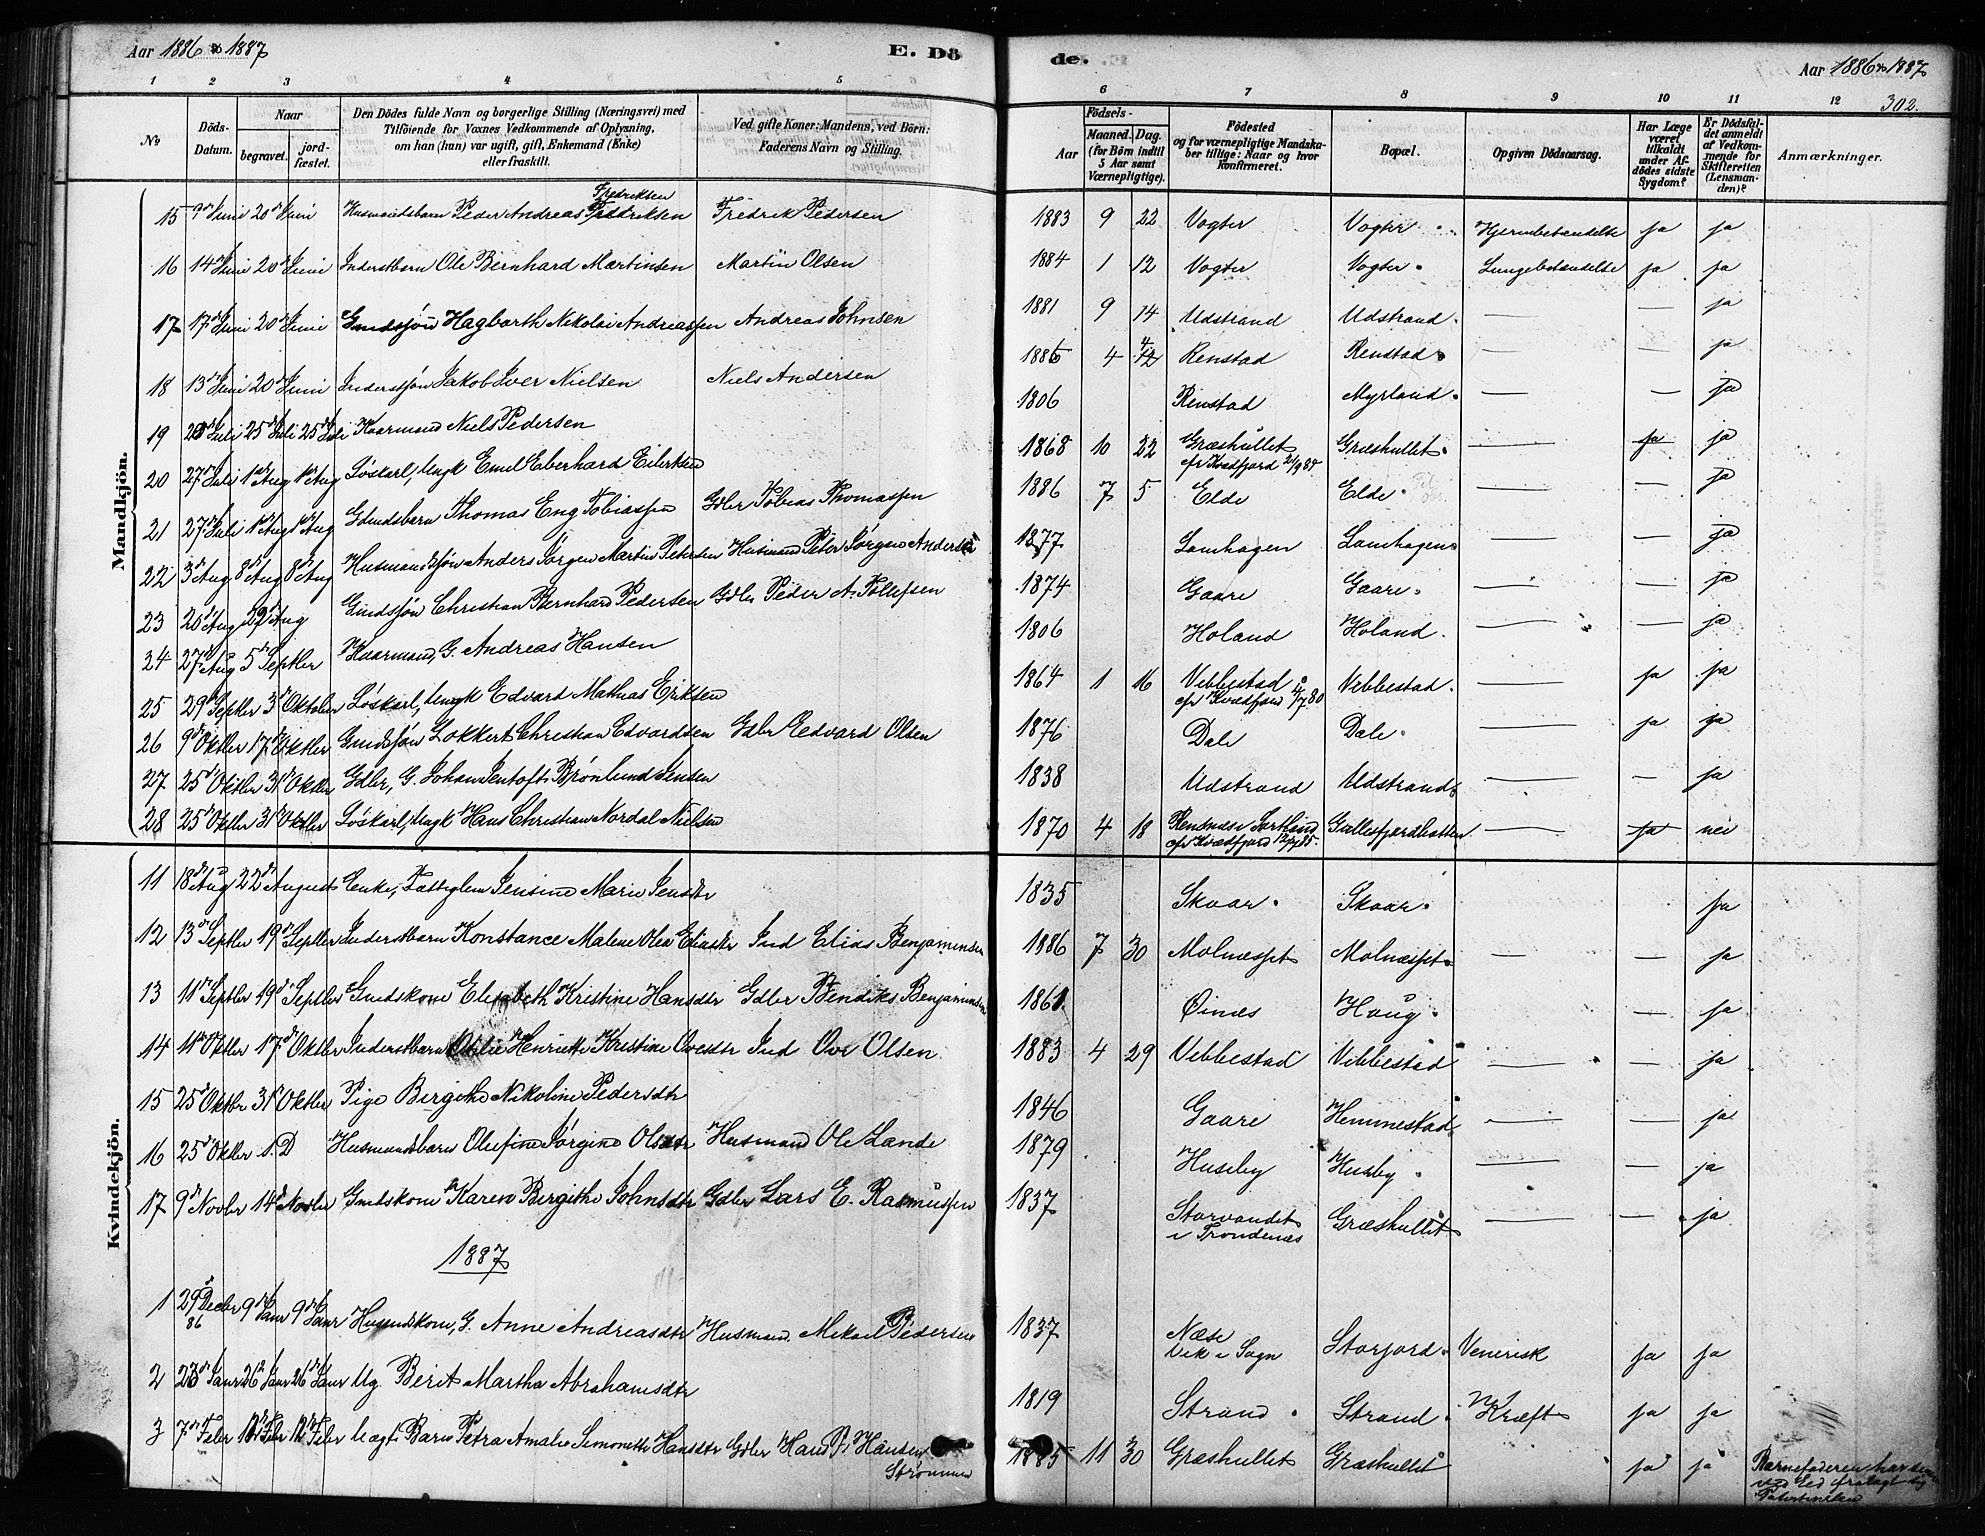 Aar 1886 & 1887
E. Dö
de.
Aar 1886 & 1887
302.
1 2 3 4 5 6 7 8 9 10 11 12
No
Döds-Datum.
Naar
begravet.
jordfæstet.
Den Dödes fulde Navn og borgerlige Stilling (Næringsvei) med
Tilföiende for Voxnes Vedkommende af Oplysning,
om han (hun) var ugift, gift, Enkemand (Enke)
eller fraskilt.
Ved gifte Koner: Mandens, ved Börn:
Faderens Navn og Stilling.
Födsels-
Aar
Maaned. Dag.
(for Börn indtil
5 Aar samt
Værnepligtige).
Födested
og for værnepligtige Mandskaber tillige: Naar og hvor
konfirmeret.
Bopæl.
Opgiven Dödsaarsag.
Har Læge
været
tilkaldt
under Afdödes sidste
Sygdom?
Er Dödsfaldet anmeldt
af Vedkommende for
Skifteretten
(Lensmanden)?
Anmærkninger.
Mandkjön.
15 9de Juni 20de Juni Husmandsbarn Peder Andreas Fredriksen Fredrik Pedersen 1883 9 22 Vogter Vogter Hjernebetændelse ja ja
16 14de Juni 20de Juni Inderstbarn Ole Bernhard Martinsen Martin Olsen 1884 1 12 Vogter Vogter Lungebetændelse ja ja
17 17de Juni 20de Juni Gmdssøn Hagbarth Nikolai Andreassen Andreas Johnsen 1881 9 14 Udstrand Udstrand — — ja
18 13de Juni 20de Juni Inderstsøn Jakob Iver Nielsen Niels Andersen 1886 4 Renstad Renstad — — ja
19 Juli 25de Juli 25de Juli Kaarmand Niels Pedersen 1806 Renstad Myrland — — ja
20 27de Juli 1ste Aug 1ste Aug Løskarl, Ungk Emil Eberhard Eilertsen 1868 10 22 Græshullet Græshullet — ja ja
cfr Kvædfjord
21 27de Juli 1ste Aug 1ste Aug Gdmdsbarn Thomas Eng Tobiassen Gdbr Tobias Thomassen 1886 7 5 Elde Elde — — ja
22 3de Aug 8de Aug 8de Aug Husmandssøn Anders Jørgen Martin Petersen Husmand Peter Jørgen Andersen 1877 Lamhagen Lamhagen — — ja
23 20de Aug 29de Aug Gmdssøn Christian Bernhard Pedersen Gdbr Peder A. Tollefsen 1874 Gaare Gaare — — ja
24 27de Aug 5de Septbr Kaarmand, G. Andreas Hansen 1806 Holand Holand — — ja
25 29de Septbr 3de Oktober Løskarl, Ungk Edvard Mathias Eriksen 1864 1 16 Vebbestad Vebbestad — ja ja
cfr Kvædfjord
26 9de Oktbr 17de Oktbr Gmdssøn Lokkert Christian Edvardsen Gdbr Eedvard Olsen 1876 Dale Dale — ja ja
27 25de Oktbr 31te Oktbr Gdbr, G. Johan Jentoft Brønlund Jensen 1838 Udstrand Udstrand — — ja
28 25de Oktbr 31te Oktbr Løskarl, Ungk Hans Christian Nordal Nielsen 1870 4 18 Rensnæs i Sortland Gullesfjordbotten — ja nei
cfr Kvædfjord
Kvindekjön.
11 18de Aug 22de August Enke, Fattiglem Jensine Marie Jensdtr 1835 Skaar Skaar ja
12 13de Septbr 19de Septbr Inderstbarn Konstance Malene Olea Eliasdtr Ind Elias Benjaminsen 1886 7 30 Molnæsset Molnæsset — — ja
13 11te Septbr 19de Septbr Gmdskone Elisabeth Kristine Hansdtr Gdbr Bendiks Benjaminsen 1861 Øinæs Haug — — ja
14 11te Oktbr 17de Oktbr Inderstbarn Otilie Henriette Kristine Ovesdtr Ind Ove Olsen 1883 4 29 Vebbestad Vebbestad — — ja
15 25de Oktbr 31te Oktbr Pige Bergithe Nikoline Pedersdtr 1846 Gaare Hemmestad — — ja
16 25de Oktbr s. D Husmandsbarn Olufine Jørgine Olsdtr Husmand Ole Lande 1879 Husby Husby — — ja
17 9de Novbr 14de Novbr Gmdskone Karen Bergithe Johnsdtr Gdbr Lars E. Rasmussen 1837 Storvandet Græshullet — — ja
i Trondenæs
1887
1 29de Decbr 9de Janr 9de Janr Husmdskone, G. Anne Andreasdtr Husmand Mikael Pedersen 1837 Næse Storjord Venerisk ja ja
86 Vik i Sogn
2 Janr 26de Janr 26de Janr Ug. Berit Martha Abrahamsdtr 1819 Strand Strand Kræft ja ja
3 7de Febr Febr Febr Uægt Barn Petra Amalie Simonette Hansdtr Gdbr Hans P. Hansen 1885 11 30 Græshullet Græshullet ja ja Barnefaderen har
Strømmen
ved Ed fralagt sig